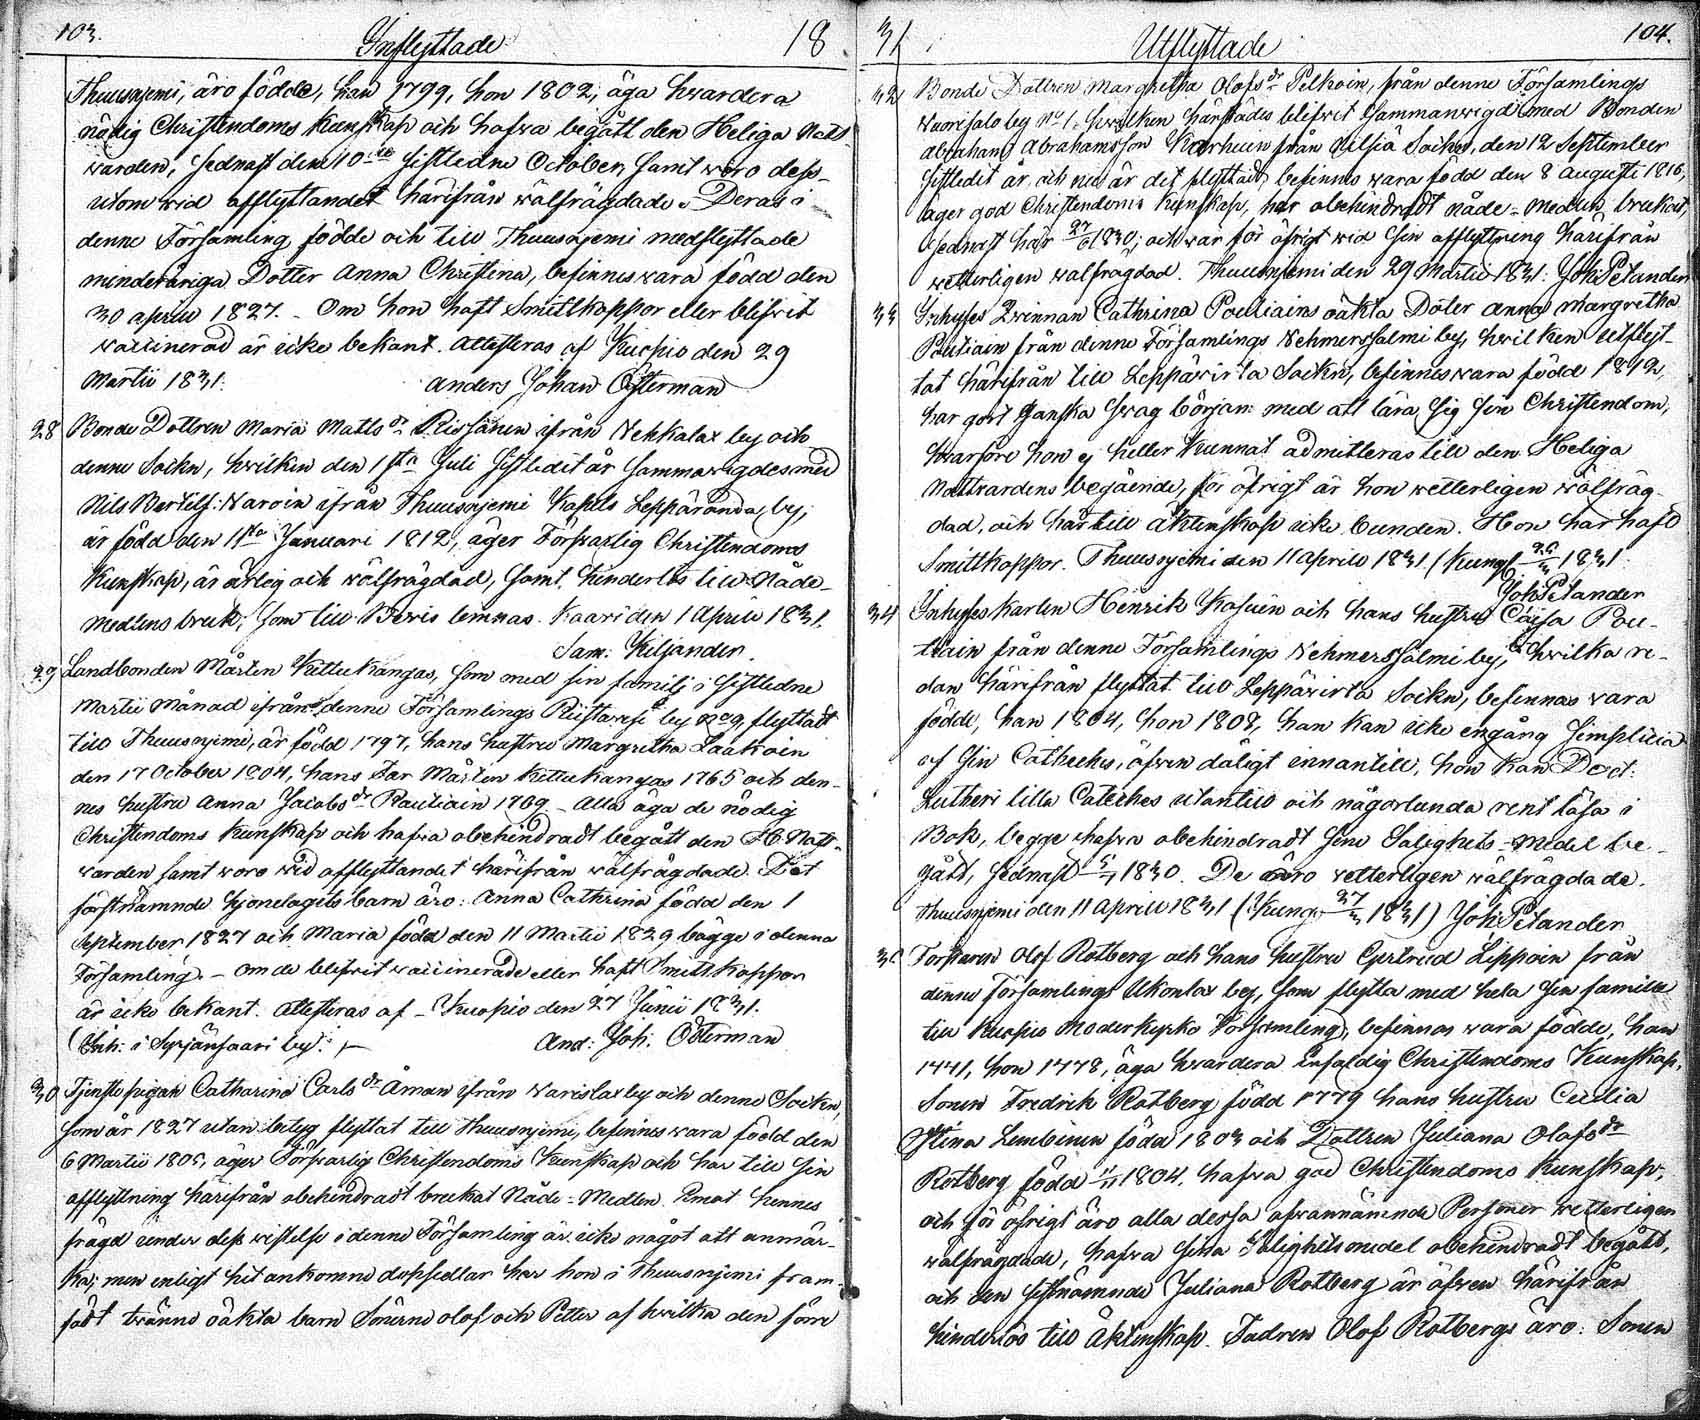 103.
Inflyttade
18
Thuusnjemi, äro födde, han 1799, hon 1802, äga hwardera
nödig Christendoms Kunskap och hafva begått den Heliga Natt
warden, sednast den 10de sistledne October, samt woro dess-
utom wid afflyttandet härifrån wälfrägdade. Deras i
denne Församling födde och till Thuusnjemi medflyttade
minderåriga Dotter Anna Christina, befinnes wara född den
30 april 1827. - Om hon haft Smittkoppor eller blifwit
waccinerad är icke bekant. attesteras af Kuopio den 29
Martii 1831.
anders Johan Österman
28 Bonde Dottren Maria Matts dr Rissanen ifrån Vehkalax by och
denne Sockn, hwilken den 1sta Juli sistledit år sammanvigdes med
Nils Bertilss: Varoin ifrån Thuusnjemi Kapells Leppäranda by,
är född den 1sta Januari 1812, äger Förswarlig Christendoms
Kunskap, är ärlig och wälfrägdad, samt hinderlös till Nåde-
medlens bruk, som till Bevis lemnas. Kaavi den 1 April 1831.
Sam: Kiljander.
29 Landbonden Mårten Kettukangas, som med sin familj i sistledne
Martii Månad ifrån denne Församlings Riistavesi by No 9, flyttadt
till Thuusnjemi, är född 1797, hans hustru Margretha Laakoin
den 17 October 1804, hans Far Mårten Kettukangas 1765 och den-
nes hustru Anna Jacobs dr Rautiain 1769 - Alla äga de nödig
Christendoms Kunskap och hafva obehindradt begått den H. Natt-
warden samt woro wid afflyttandet härifrån wälfrägdade. Det
förstnämnde Hjonelagets barn äro: Anna Cathrina född den 1
September 1827 och Maria född den 11 Martii 1829 bägge i denna
Församling. - om de blifwit waccinerade eller haft Smittkoppor
är icke bekant. Attesteras af - Kuopio den 27 Junii 1831.
(Inh: i Syrjänsaari by.
And: Joh. Österman
30 Tjenstepigan Catharina Carls dr Åman ifrån Warislax by och denne Socken,
som år 1827 utan betyg flyttat till Thuusnjemi, befinnes wara född den
6 Martii 1805, äger Förswarlig Christendoms Kunskap och har till sin
afflyttning härifrån obehindradt brukat Nåde-Medlen. Emot hennes
frägd under dess wistelse i denne Församling är icke något att anmär-
ka; men enligt hit ankomne dopsedlar har hon i Thuusnjemi fram-
födt twänne oäkta barn Sönerne Olof och Petter af hwilka den förre
31
Utflyttade
104.
32 Bonde Dottren Margretha Olofs dr Pelkoin, från denne Församlings
Vuorisalo by No 1, hwilken härstädes blifwit Sammanwigd med Bonden
Abraham Abrahamsson Karhuun från Nilsiä Socken, den 12 September
sistledit år, och nu är dit flyttad, befinnes wara född den 8 augusti 1816,
äger god Christendoms Kunskap, har obehindradt nåde-medlen brukat,
sednast här 27/6 1830; och war för öfrigt wid sin afflyttning härifrån
wetterligen wälfrägdad. Thuusnjemi den 29 Martii 1831. Joh: Petander
33 Inhyses Qvinnan Cathrina Poutiains oäkta Doter Anna Margretha
Poutiain från denne Församlings Vehmerssalmi by, hwilken utflyt-
tat härifrån till Leppäwirta Sockn, befinnes wara född 1812,
har gort ganska swag början med att lära sig sin Christendom,
hwarföre hon ej heller kunnat admitteras till den Heliga
Nattvardens begående, för öfrigt är hon wetterligen wälfräg-
dad, och här till äktenskap icke bunden. Hon har haft
Smittkoppor. Thuusnjemi den 11 April 1831. (Kungj 1831
Joh: Petander
34 Inhysses Karlen Henrik Kosuin och hans hustru Caisa Pou-
tiain från denne Församlings Vehmerssalmi by, hwilka re-
dan härifrån flyttat till Leppävirta Sockn, befinnas wara
födde, han 1804, hon 1808, han kan icke engång Simplicia
af sin Catheches, äfven dåligt innantill, hon kan Doct:
Lutheri lilla Cateches utantill och någorlunda rent läsa i
Bok, begge hafva obehindradt sine Salighets-Medel be-
gått, sednast 1830. De äro wetterligen wälfrägdade.
Thuusnjemi den 11 April 1831 (Kung: 27/3 1831) Joh: Petander
35 Torparen Olof Rotberg och hans hustru Gertrud Lippoin från
denne Församlings Ukonlax by, som flytta med hela sin familie
till Kuopio Moderkyrko Församling, befinnas wara födde, han
1741, hon 1778, äga hwardera enfaldig Christendoms Kunskap,
Sonen Fredrik Rotberg född 1779 hans hustru Cecilia
Stina Lembinen född 1803 och Dottren Juliana Olofs dr
Rotberg född 1804. hafva god Christendoms Kunskap,
och för öfrigt äro alla dessa ofvannämnde Personer wetterligen
wälfrägdade, hafva sina Salighetsmedel obehindradt begått,
och den sistnämnde Juliana Rotberg är äfwen härifrån
hinderlös till Äktenskap. Fadren Olof Rotbergs äro: Sonen